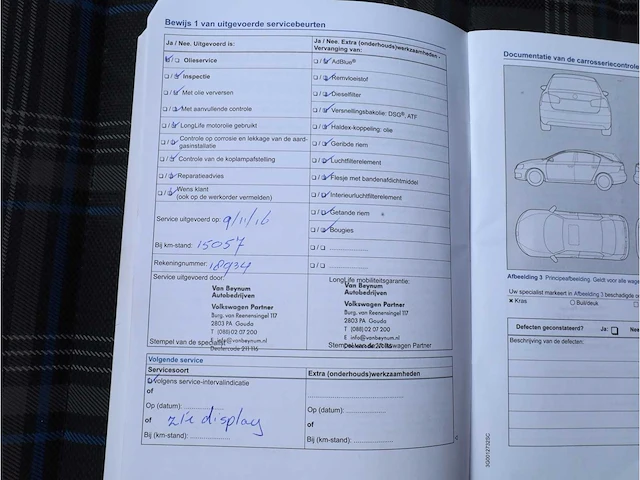 Bewijs 1 van uitgevoerde servicebeurten
Ja / Nee. Uitgevoerd is:
Olieservice
Inspectie
Met olie verversen
Met aanvullende controle
LongLife motorolie gebruikt
Controle op corrosie en lekkage van de aard-
gasinstallatie
Controle van de koplampafstelling
Reparatieadvies
Wens klant
(ook op de werkorder vermelden)
Service uitgevoerd op: 9/11/16
Bij km-stand: 15057
Rekeningnummer: 18934
Service uitgevoerd door:
Van Beynum
Autobedrijven
Volkswagen Partner
Burg. van Reenensingel 117
2803 PA Gouda
T (088) 02 07 200
E info@vanbeynum.nl
Dealercode 211 116
Stempel van de specialist
Ja / Nee. Extra (onderhouds)werkzaamheden -
Vervanging van:
AdBlue®
Remvloeistof
Dieselfilter
Versnellingsbakolie: DSG®, ATF
Haldex-koppeling: olie
Geribde riem
Luchtfilterelement
Flesje met bandenafdichtmiddel
Interieurluchtfilterelement
Getande riem
Bougies
LongLife mobiliteitsgarantie:
Van Beynum
Autobedrijven
Volkswagen Partner
Burg. van Reenensingel 117
2803 PA Gouda
T (088) 02 07 200
E info@vanbeynum.nl
Dealercode 211 116
Stempel van de Volkswagen Partner
Volgende service
Servicesoort
volgens service-intervalindicatie
of
Op (datum):
of zie display
Bij (km-stand):
Extra (onderhouds)werkzaamheden
Op (datum):
of
Bij (km-stand):
3G0012732SC
Documentatie van de carrosseriecontrole
Afbeelding 3 Principeafbeelding. Geldt voor alle wage
Uw specialist markeert in Afbeelding 3 beschadigde o
× Kras
Buil/deuk
Defecten geconstateerd? Ja: Ne
Beschrijving van de defecten: